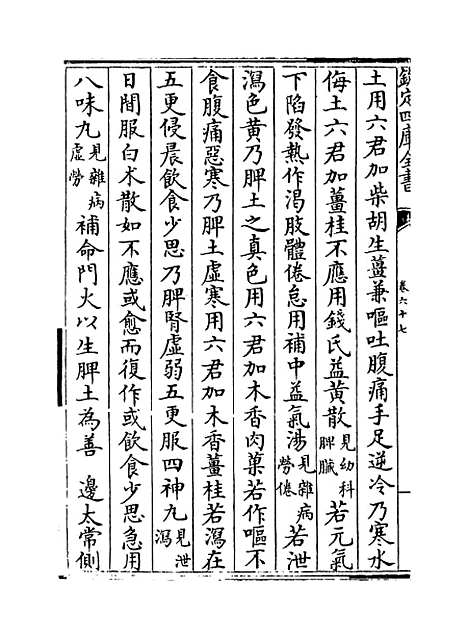 欽定四庫全書
卷六十七
土用六君加柴胡生薑兼嘔吐腹痛手足逆冷乃寒水
侮土六君加薑桂不應用錢氏益黃散見幼科脾臟若元氣
下陷發熱作渴肢體倦怠用補中益氣湯見雜病勞倦若泄
瀉色黃乃脾土之真色用六君加木香肉菓若作嘔不
食腹痛惡寒乃脾土虛寒用六君加木香薑桂若瀉在
五更侵晨飲食少思乃脾腎虛弱五更服四神丸見泄瀉
日間服白术散如不應或愈而復作或飲食少思急用
八味丸見雜病虛勞補命門火以生脾土為善 邊太常側